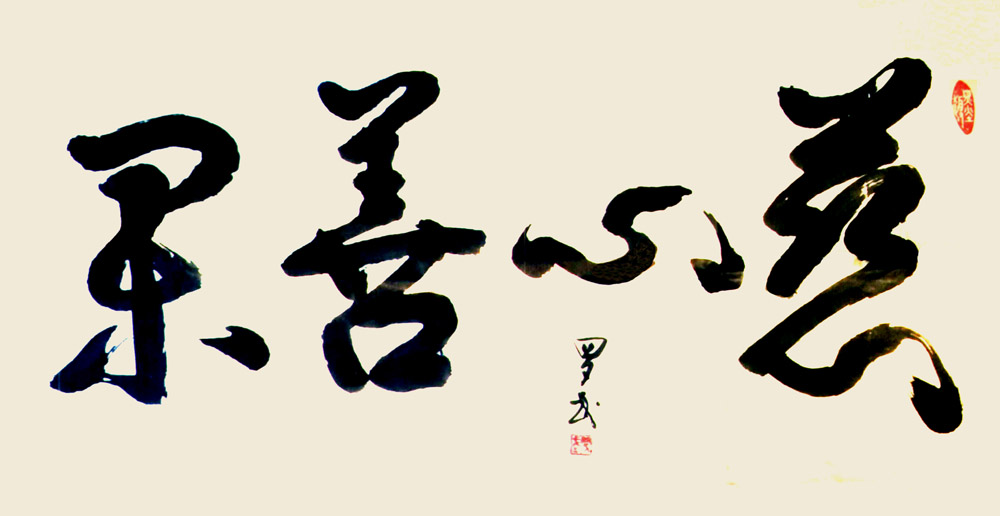 慈心善果
罗